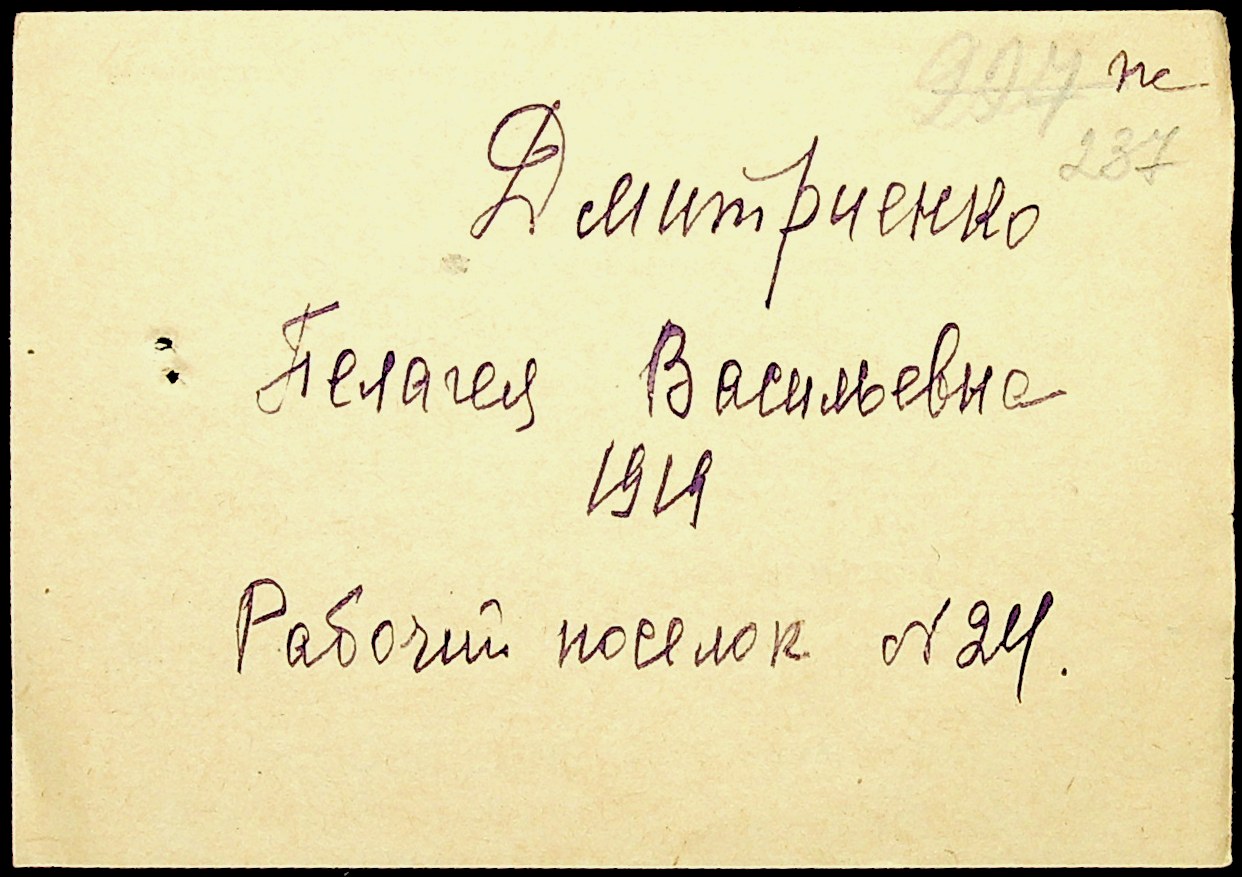 пс
237
Дмитриенко
Пелагея Васильевна
1919
Рабочий поселок №24.